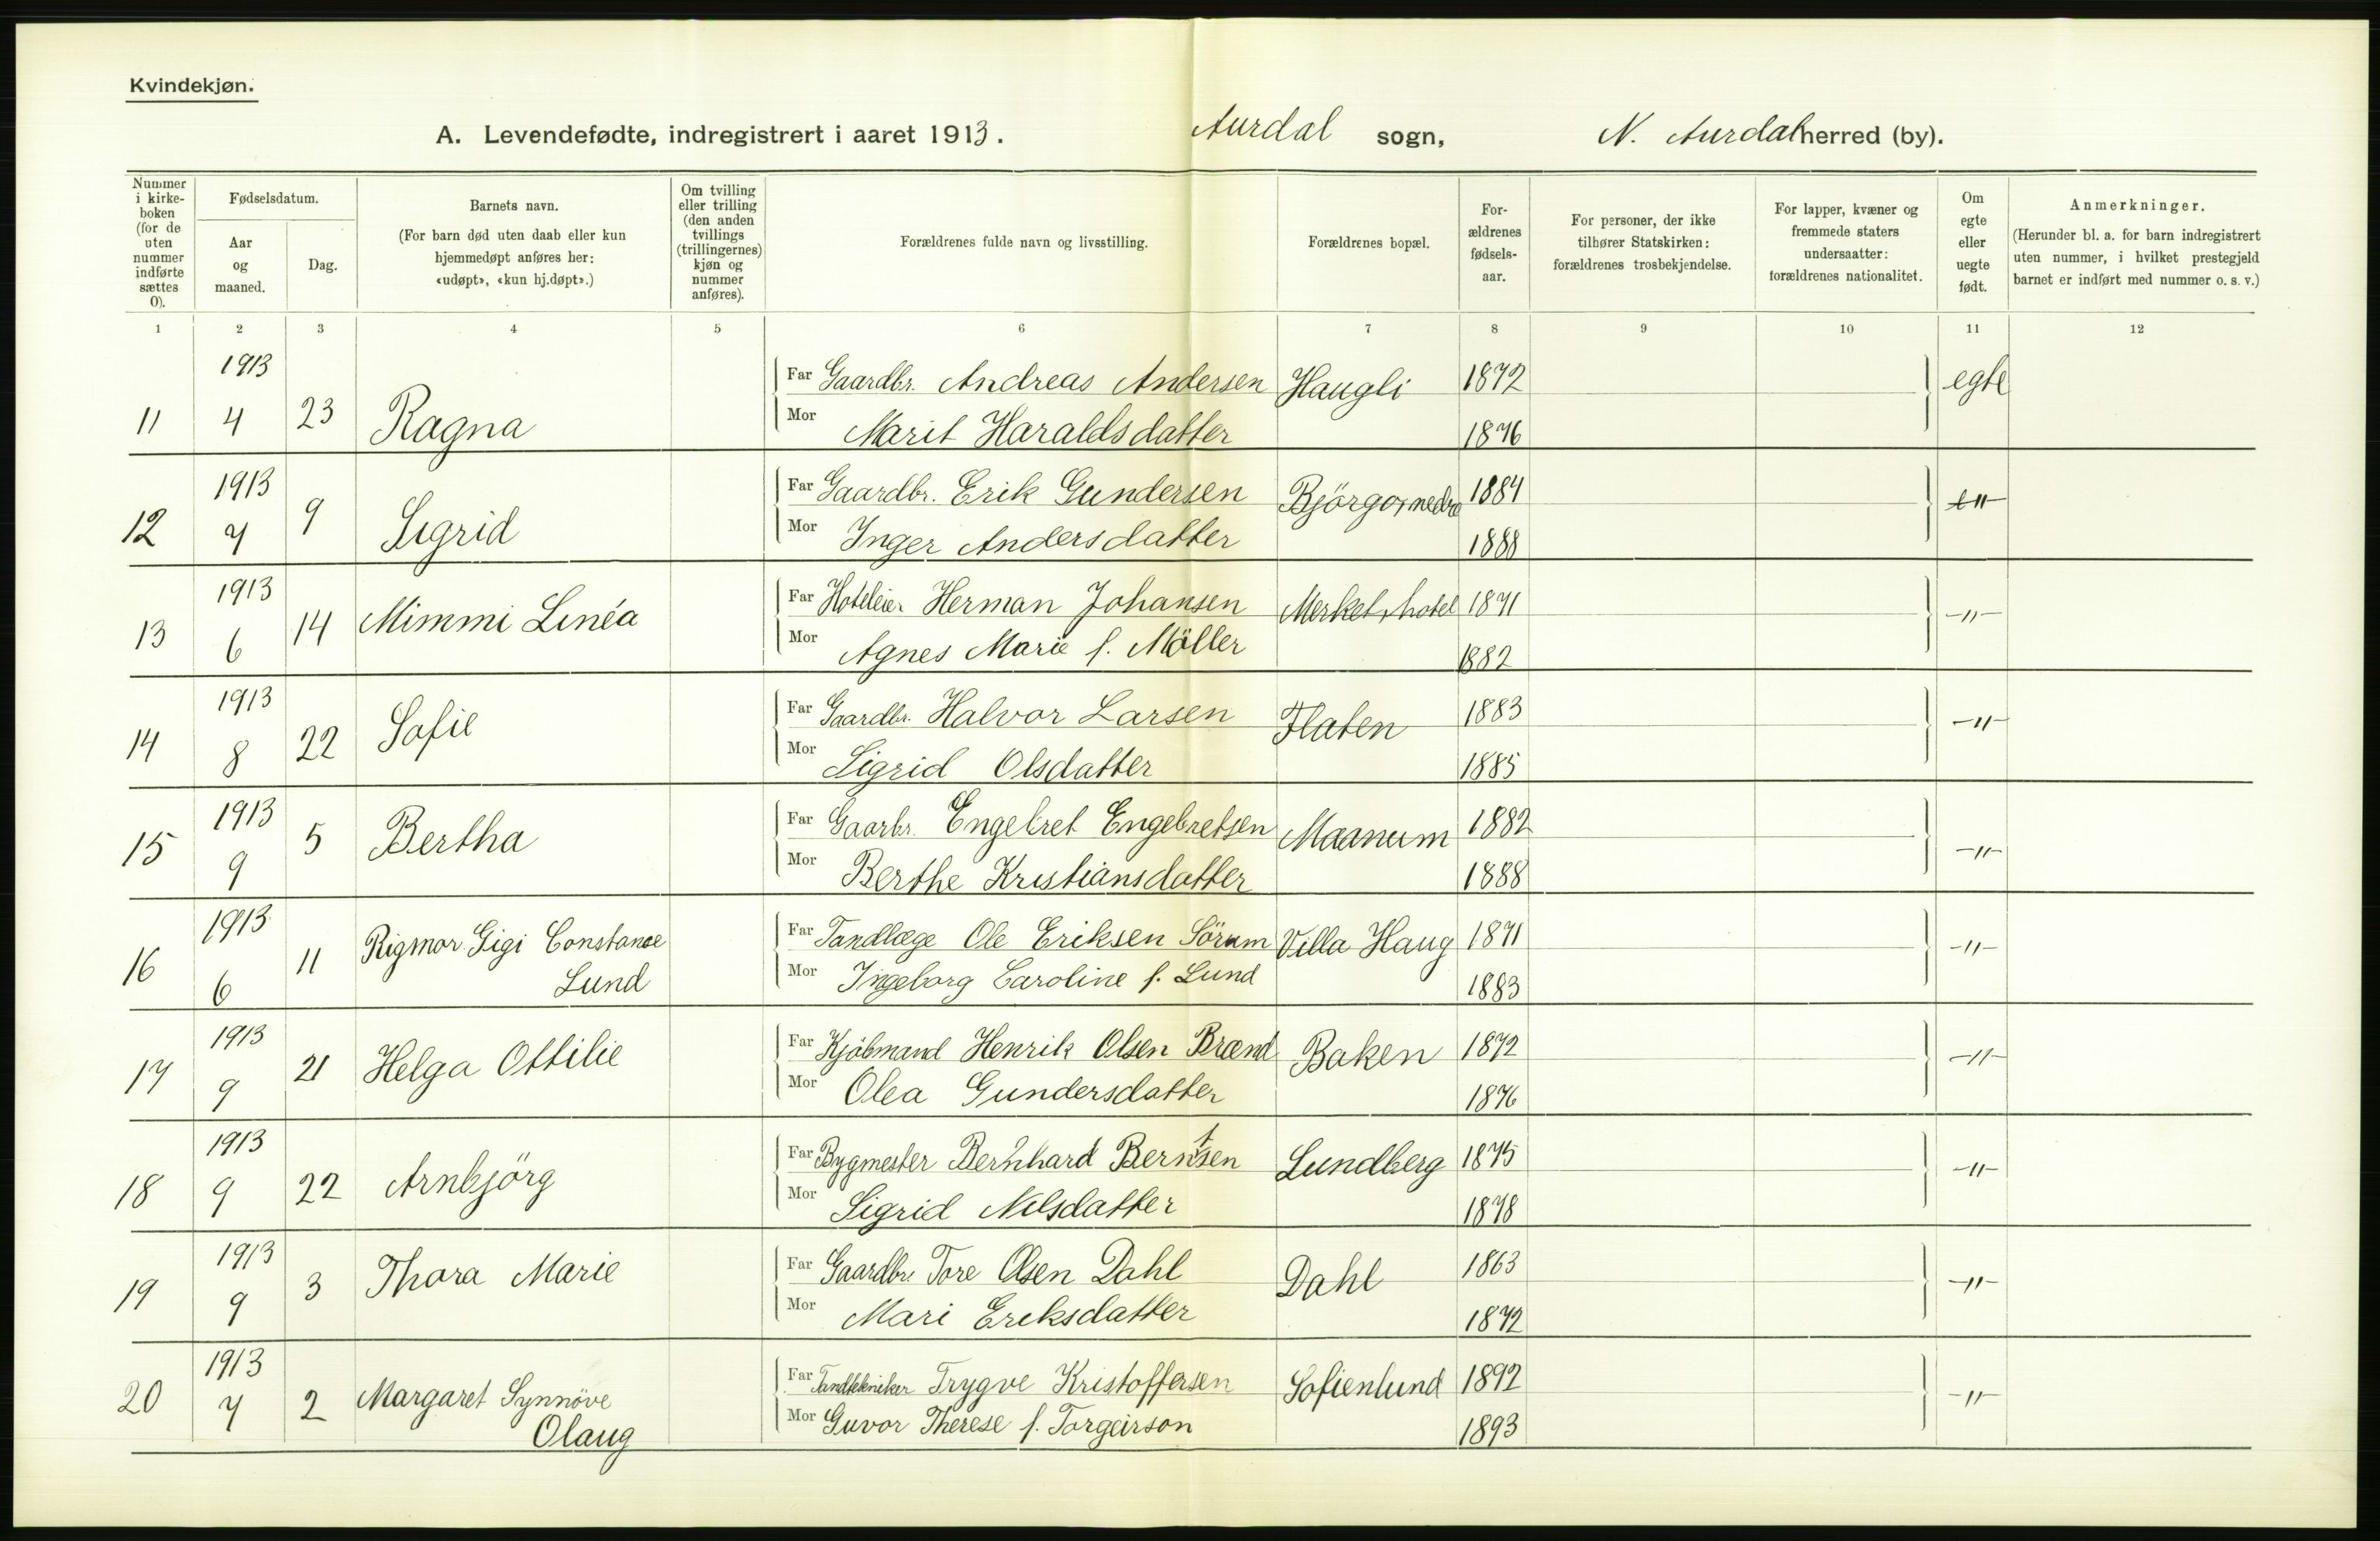 Kvindekjøn.
A. Levendefødte, indregistrert i aaret 1913. Aurdal sogn, N. Aurdal herred (by).
Nummer i kirke-boken (for de uten nummer indførte sættes 0).
Fødselsdatum.
Aar og maaned.
Dag.
Barnets navn.
(For barn død uten daab eller kun hjemmedøpt anføres her: «udøpt», «kun hj.døpt».)
Om tvilling eller trilling (den anden tvillings (trillingernes) kjøn og nummer anføres).
Forældrenes fulde navn og livsstilling.
Forældrenes bopæl.
For-ældrenes fødsels-aar.
For personer, der ikke tilhører Statskirken: forældrenes trosbekjendelse.
For lapper, kvæner og fremmede staters undersaatter: forældrenes nationalitet.
Om egte eller uegte født.
Anmerkninger.
(Herunder bl. a. for barn indregistrert uten nummer, i hvilket prestegjeld barnet er indført med nummer o. s. v.)
1 2 3 4 5 6 7 8 9 10 11 12
1913 Far Gaardbr. Andreas Andersen Haugli 1872 egte
11 4 23 Ragna Mor Marit Haraldsdatter 1876
1913 Far Gaardbr. Erik Gundersen Björgo, nedre 1884 -"-
12 7 9 Sigrid Mor Inger Andersdatter 1888
1913 Far Hoteleier Herman Johansen Merket, hotel 1871 -"-
13 6 14 Mimmi Linéa Mor Agnes Marie f. Möller 1882
1913 Far Gaardbr. Halvor Larsen Flaten 1883 -"-
14 8 22 Sofie Mor Sigrid Olsdatter 1885
1913 Far Gaarbr. Engebret Engebretsen Maanum 1882 -"-
15 9 5 Bertha Mor Berthe Kristiansdatter 1888
1913 Far Tandlæge Ole Eriksen Sörum Villa Haug 1871 -"-
16 6 11 Rigmor Gigi Constance Lund Mor Ingeborg Caroline f. Lund 1883
1913 Far Kjöbmand Henrik Olsen Brænd Baken 1872 -"-
17 9 21 Helga Ottilie Mor Olea Gundersdatter 1876
1913 Far Bygmester Bernhard Berntsen Lundberg 1875 -"-
18 9 22 Arnbjörg Mor Sigrid Nilsdatter 1878
1913 Far Gaardbr. Tore Olsen Dahl Dahl 1863 -"-
19 9 3 Thora Marie Mor Mari Eriksdatter 1872
1913 Far Tandtekniker Trygve Kristoffersen Sofienlund 1892 -"-
20 7 2 Margaret Synnöve Olaug Mor Guvor Therese f. Torgeirson 1893